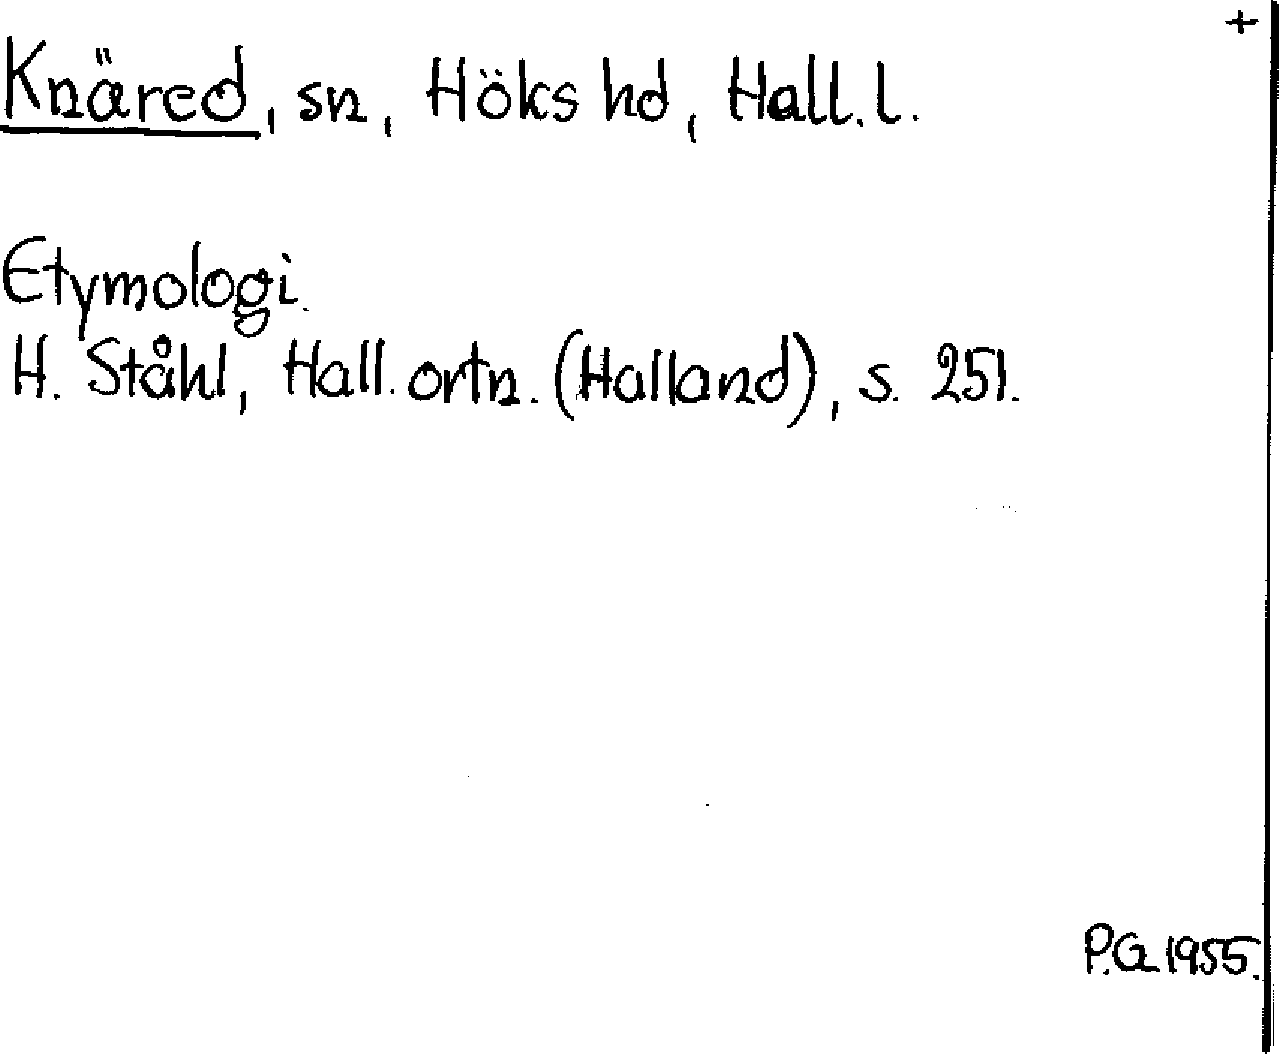 +
Knäred, sn, Höks hd, Hall. l.
Etymologi.
H. Ståhl, Hall. ortn. (Halland), s. 251.
P.G. 1955.